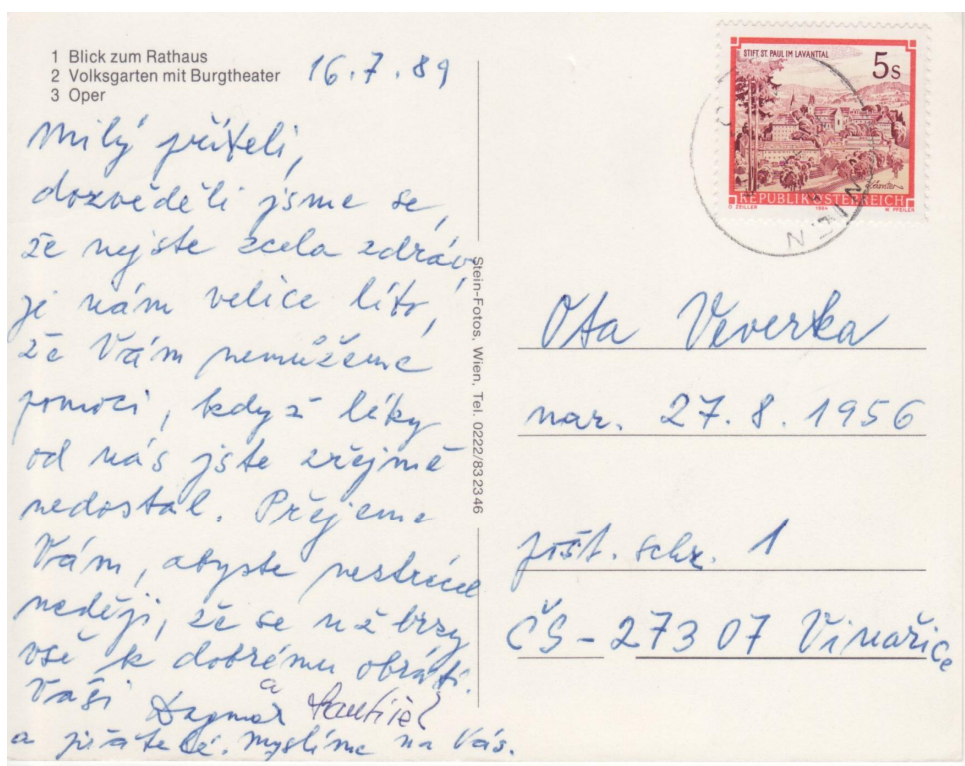 1 Blick zum Rathaus
2 Volksgarten mit Burgtheater
3 Oper
16.7.89
Milý příteli,
dozvěděli jsme se,
že nejste zcela zdráv,
je nám velice líto,
že Vám nemůžeme
pomoci, když léky
od nás jste zřejmě
nedostal. Přejeme
Vám, abyste neztrácel
naději, že se už brzy
vše k dobrému obrátí.
Vaši Dagmar a
a přátelé. Myslíme na Vás.
Stein-Fotos, Wien, Tel. 0222/832346
STIFT ST. PAUL IM LAVANTTAL
5s
REPUBLIK ÖSTERREICH
O. ZEILLER 1984 W. PFEILER
WIEN
Ota Veverka
nar. 27.8.1956
pošt. schr. 1
ČS-27307 Vinařice